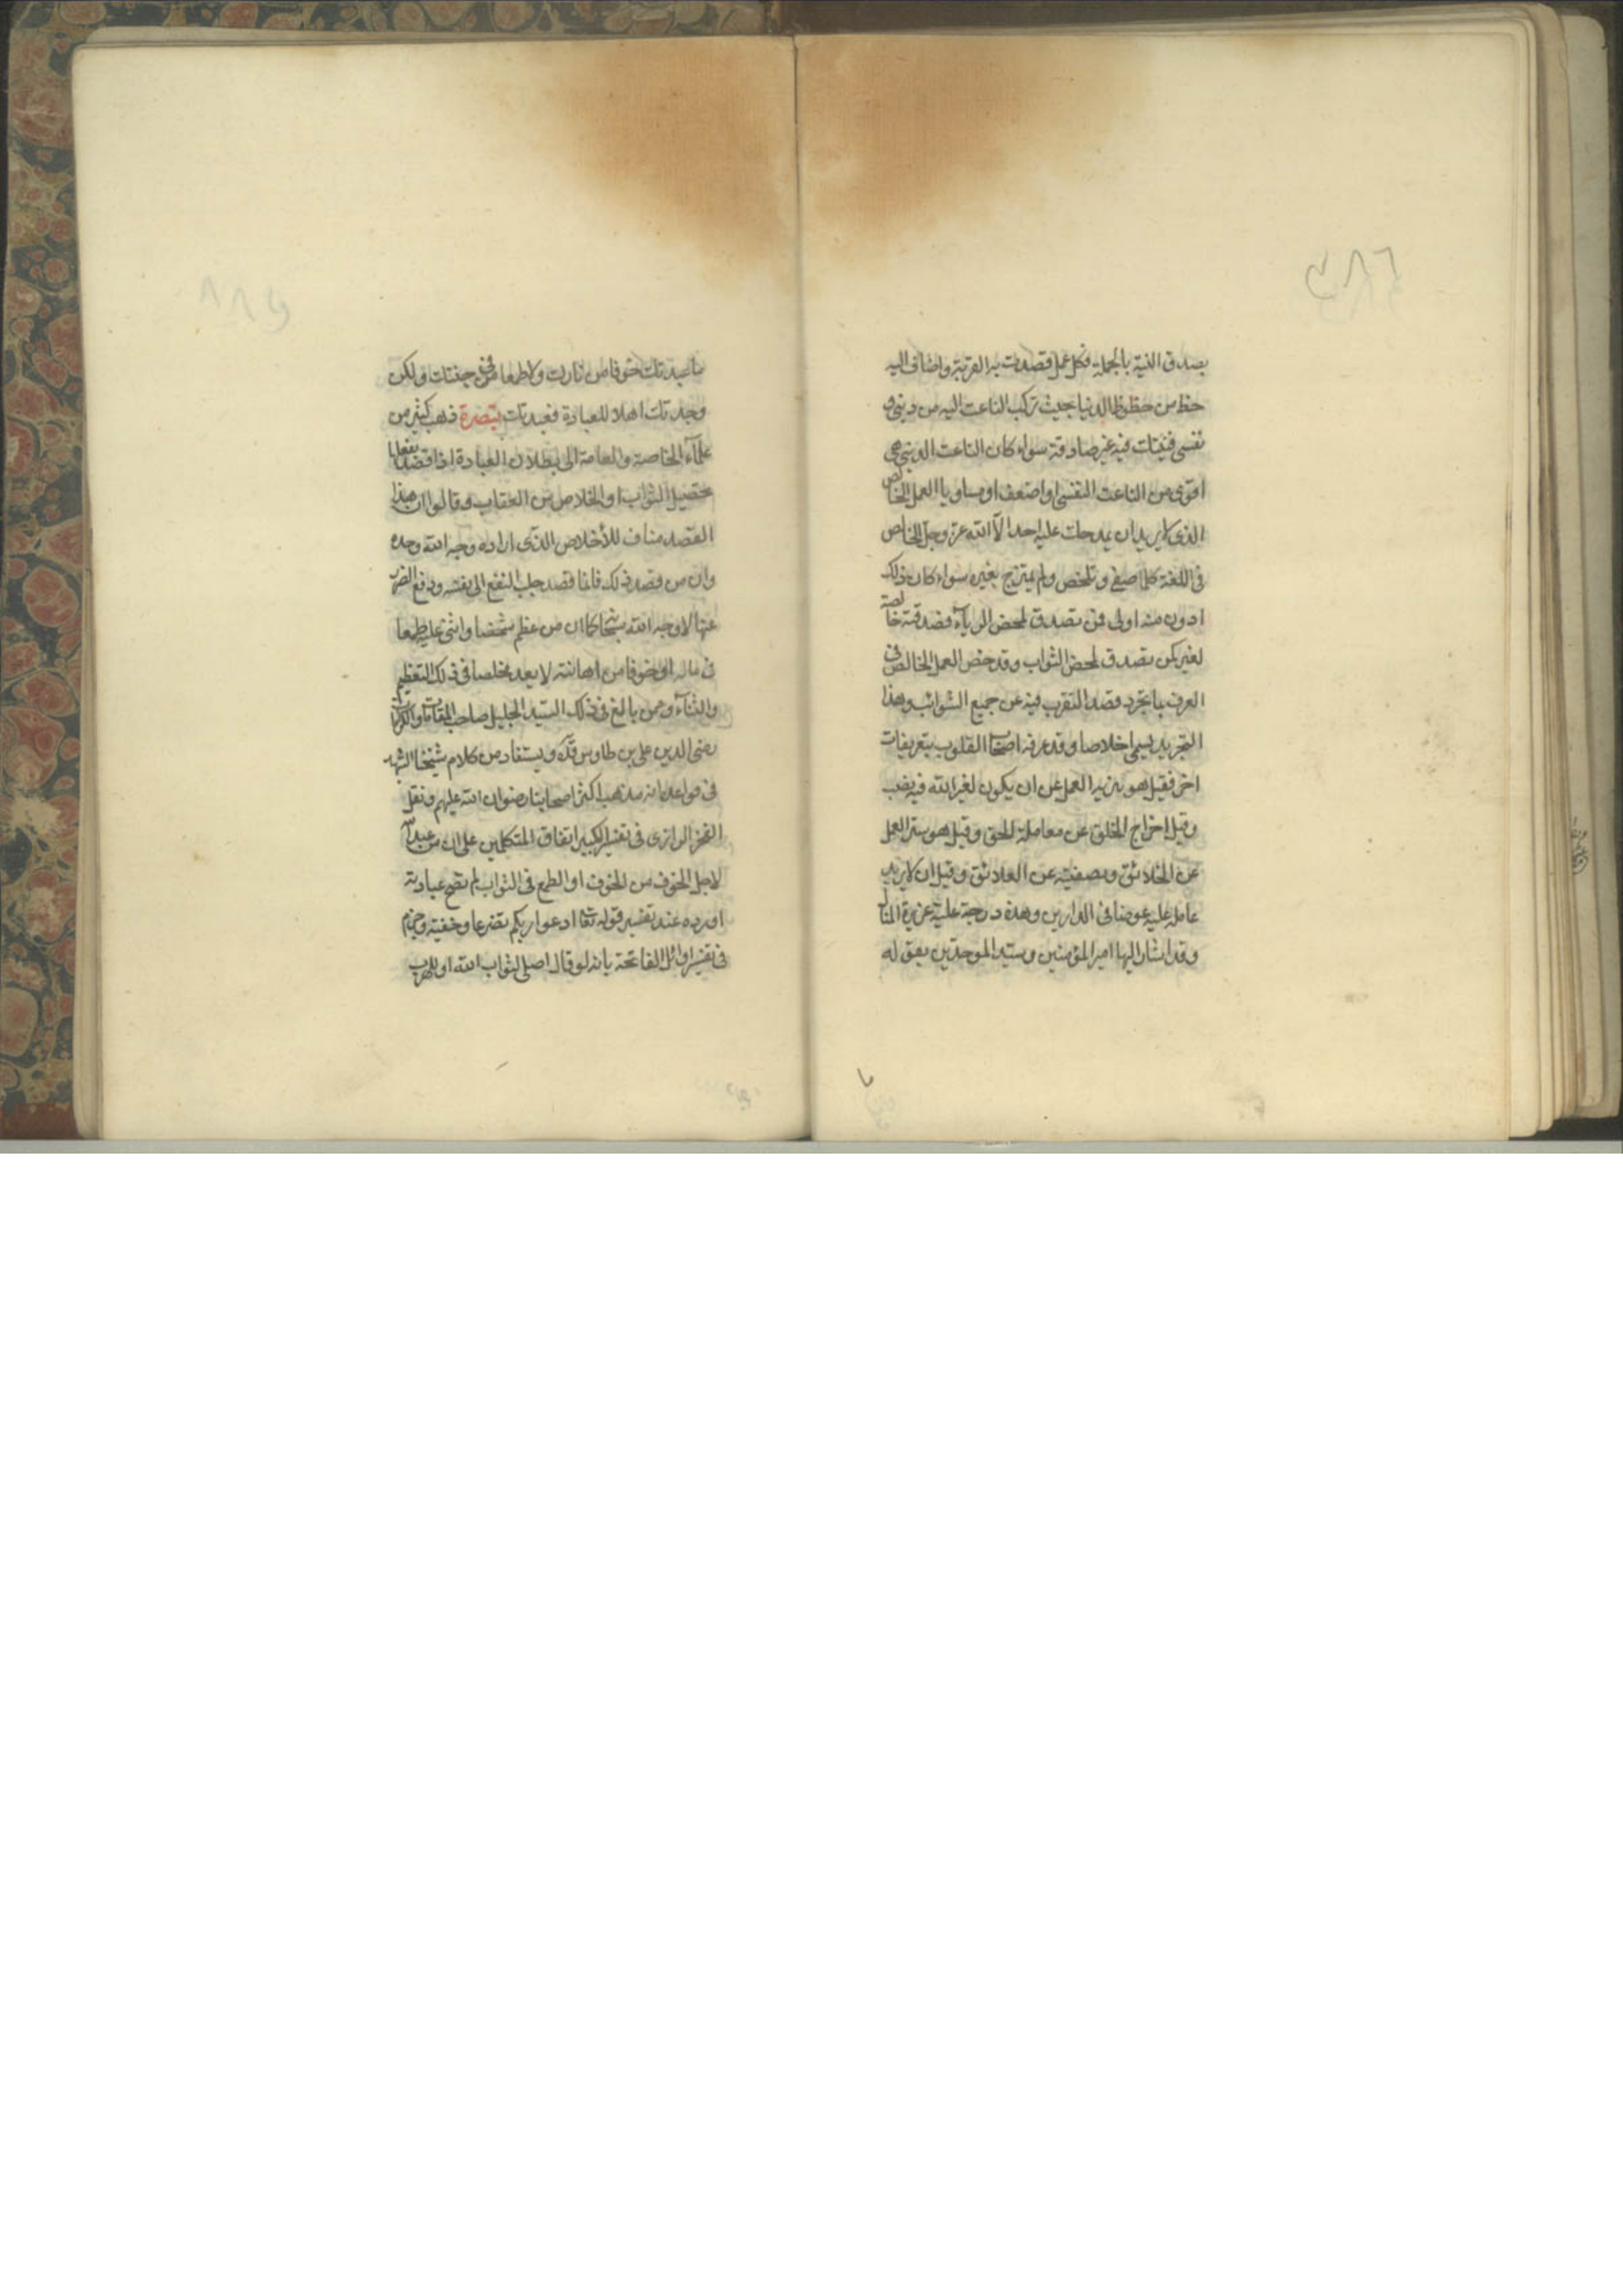 بصدق النية بالجملة فكل عمل قصدت به القربة واضاف اليه
حظ من حظوظ الدنيا بحيث تركب الباعث اليه من ديني و
نفسي فنيتك فيه غير صادقة سواء كان الباعث الديني
اقوى من الباعث النفسي او اضعف او مساويا العمل الخالص
الذي لا يريد ان يمدحك عليه احد الا الله عز وجل الخالص
في اللغة كلما صفي و تلخص ولم يمتزج بغيره سواء كان ذلك
ادون منه او لى فمن تصدق لمحض الرياء فصدقته خالصة
لغير كمن تصدق لمحض الثواب وقد خص العمل الخالص في
العرف بما تجرد قصد التقرب فيه عن جميع الشوائب وهذا
التجريد يسمى اخلاصا وقد عرفه اصحاب القلوب بتعريفات
اخر فقيل هو تنزيه العمل عن ان يكون لغير الله فيه نصيب
وقيل اخراج الخلق عن معاملة الحق وقيل هو ستر العمل
عن الخلائق وتصفيته عن العلائق وقيل ان لا يريد
عامله عليه عوضا فى الدارين وهذه درجة علية عزيزة المنال
وقد اشار اليها امير المؤمنين وسيد الموحدين بقوله
ما عبدتك خوفا من نارك ولا طمعا في جنتك ولكن
وجدتك اهلا للعبادة فعبدتك تبصرة ذهب كثير من
علماء الخاصة والعامة الى بطلان العبادة اذا قصد بفعلها
تحصيل الثواب او الخلاص من العقاب وقالوا ان هذا
القصد مناف للأخلاص الذى اراده وجه الله وحده
وان من قصد ذلك فانما قصد جلب النفع الى نفسه ودفع الضرر
عنها لا وجه الله سبحانه كما ان من عظم شخصا واثنى عليه طمعا
فى ماله او خوفا من اهانته لا يعد مخلصا فى ذلك التعظيم
والثناء وممن بالغ فى ذلك السيد الجليل صاحب المقامات والكرامات
رضى الدين على بن طاوس قدّه ويستفاد من كلام شيخنا الشهيد
فى قواعده انه مذهب اكثر اصحابنا رضوان الله عليهم ونقل
الفخر الرازى فى تفسير الكبير اتفاق المتكلمين على ان من عبد الله
لاجل الخوف من الخوف او الطمع فى الثواب لم تصح عبادته
اورده عند تفسير قوله تعا ادعوا ربكم تضرعا وخفية وجزم
فى تفسير اوائل الفاتحة بانه لو قال اصلى لثواب الله او للهرب